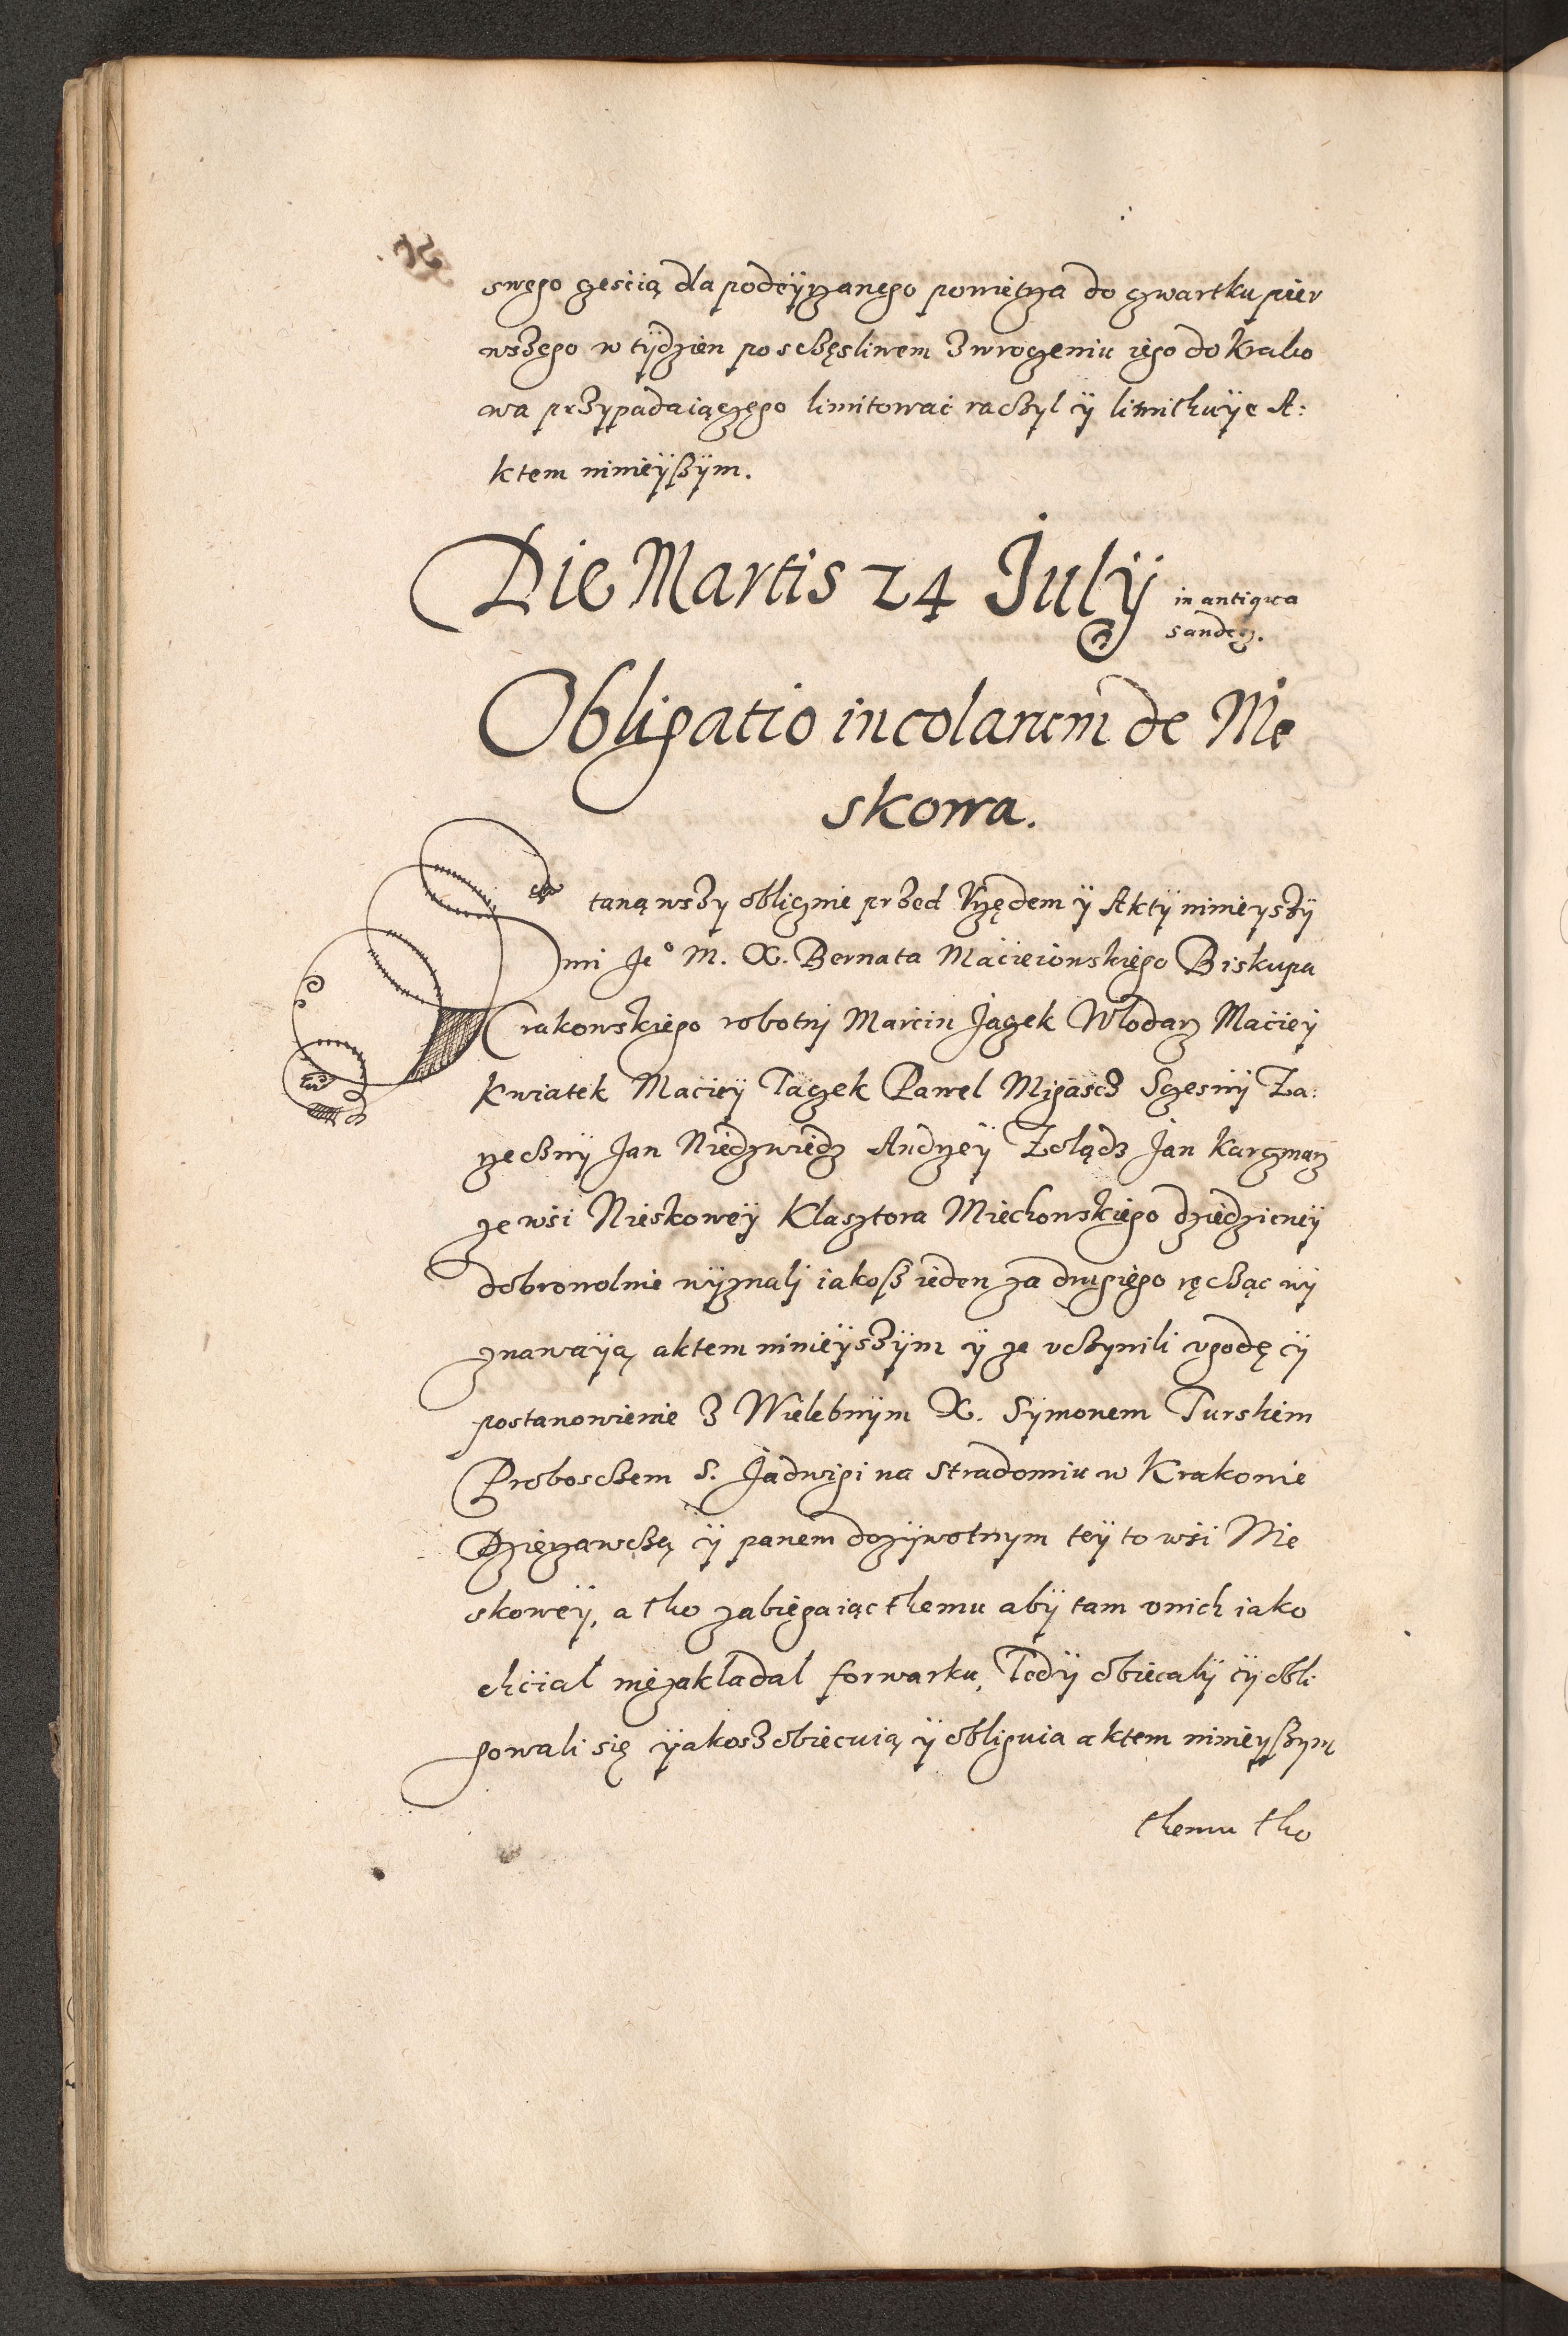 swego częścią dla podeÿrzanego powietrza do czwartku pier
wszego w tÿdzien po sczęsliwem zwroceniu iego do Krako
wa przypadaiączego limitowac raczyl ÿ limithuÿe A:
ktem ninieÿßÿm.
Die Martis 24 Julÿ in antiqua
Sandecz.
Obligatio incolarum de Nie
skowa.
Stanąwszy oblicznie przed Vrzędem ÿ Aktÿ ninieyszÿ
mi Je° M. X. Bernata Macieiowskiego Biskupa
Crakowskiego robotnj Marcin Jaczek Wlodarz Macieÿ
Kwiatek Macieÿ Taczek Pawel Migascz Sczesnÿ Za:
rzecznÿ Jan Niedzwiedz Andrzeÿ Zolądz Jan Karczmarz
ze wsi Nieskoweÿ Klasztora Miechowskiego dziedziczneÿ
dobrowolnie wÿznalj iakoß ieden za drugiego ręcząc wÿ
znawaÿą aktem ninieÿszÿm ÿ ze vczynili vgodę ÿ
postanowienie z Wielebnÿm X. Sÿmonem Turskim
Proboszczem S. Jadwigi na Stradomiu w Krakowie
Dzierzawczą ÿ panem dozÿwotnym teÿ to wsi Nie
skoweÿ, a tho zabiegaiąc themu abÿ tam v nich iako
chcial nie zakladal forwarku, Tedÿ obiecalÿ ÿ obli
gowali się ÿakosz obiecuią ÿ obliguia aktem ninieyßym
themu tho